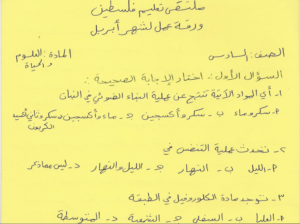 ملتقى تعليم فلسطين
ورقة عمل لشهر أبريل
الصف: السادس المادة: العلوم والحياة
السؤال الأول: اختار الإجابة الصحيحة:
١- أي المواد الآتية تنتج عن عملية البناء الضوئي في النبات
أ- سكر وماء ب- سكر وأكسجين ج- ماء وأكسجين د- سكر وثاني أكسيد الكربون
٢- تحدث عملية التنفس في
أ- الليل ب- النهار ج- الليل والنهار د- ليس مما ذكر
٣- توجد مادة الكلوروفيل في الطبقة
أ- العليا ب- السفلى ج- د- المتوسطة